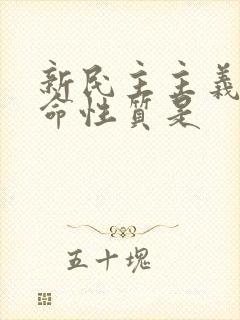 新民主主義
命性質是
五十塊